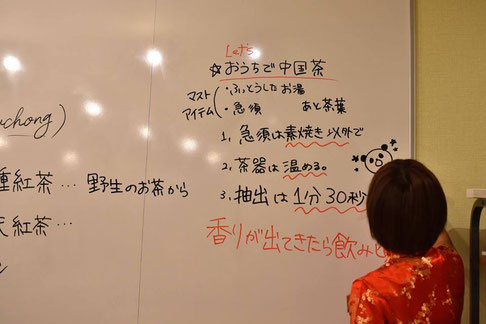 Let's
☆おうちで中国茶
マスト
アイテム
・ふっとうしたお湯
・急須 あと茶葉
1. 急須は素焼き以外で
2. 茶器は温める。
3. 抽出は1分30秒
香りが出てきたら飲み
uchong)
種紅茶…野生のお茶から
紅茶…